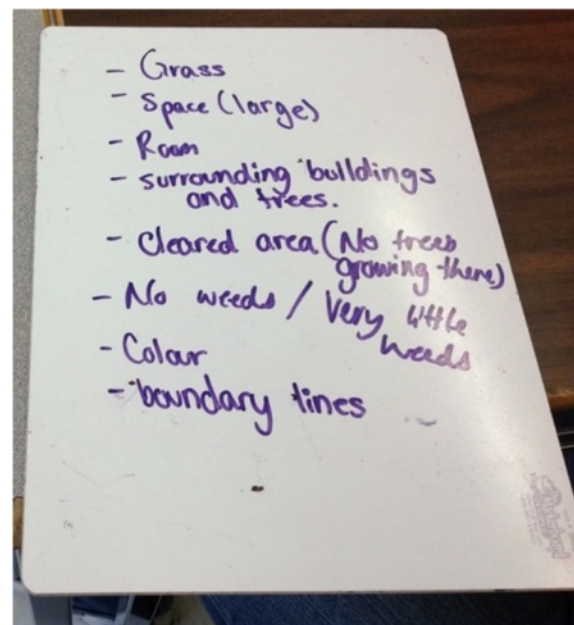 - Grass
- Space (large)
- Room
- surrounding buildings
and trees.
- Cleared area (No trees
growing there)
- No weeds / Very little
weeds
- Colour
- boundary lines